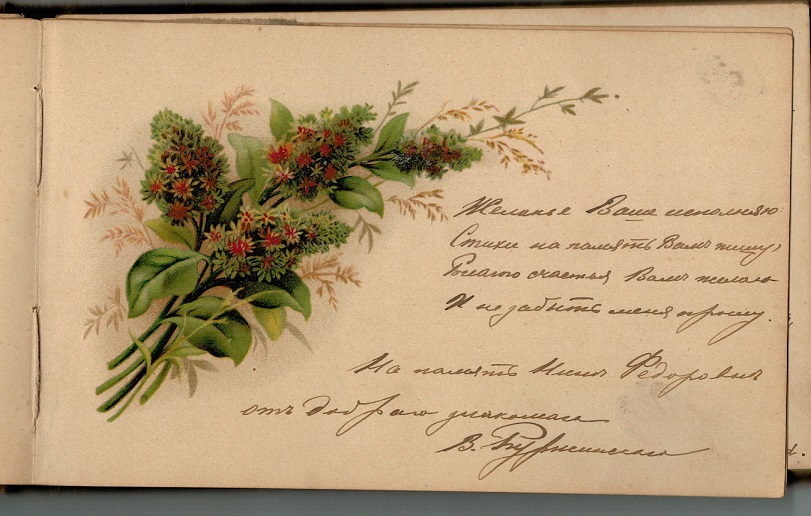 Желанье Ваше исполняю:
Стихи на память Вамъ пишу,
счастья Вамъ желаю
И не забыть меня прошу.
На память Нинѣ Ѳедоровнѣ
отъ добраго знакомаго
В.